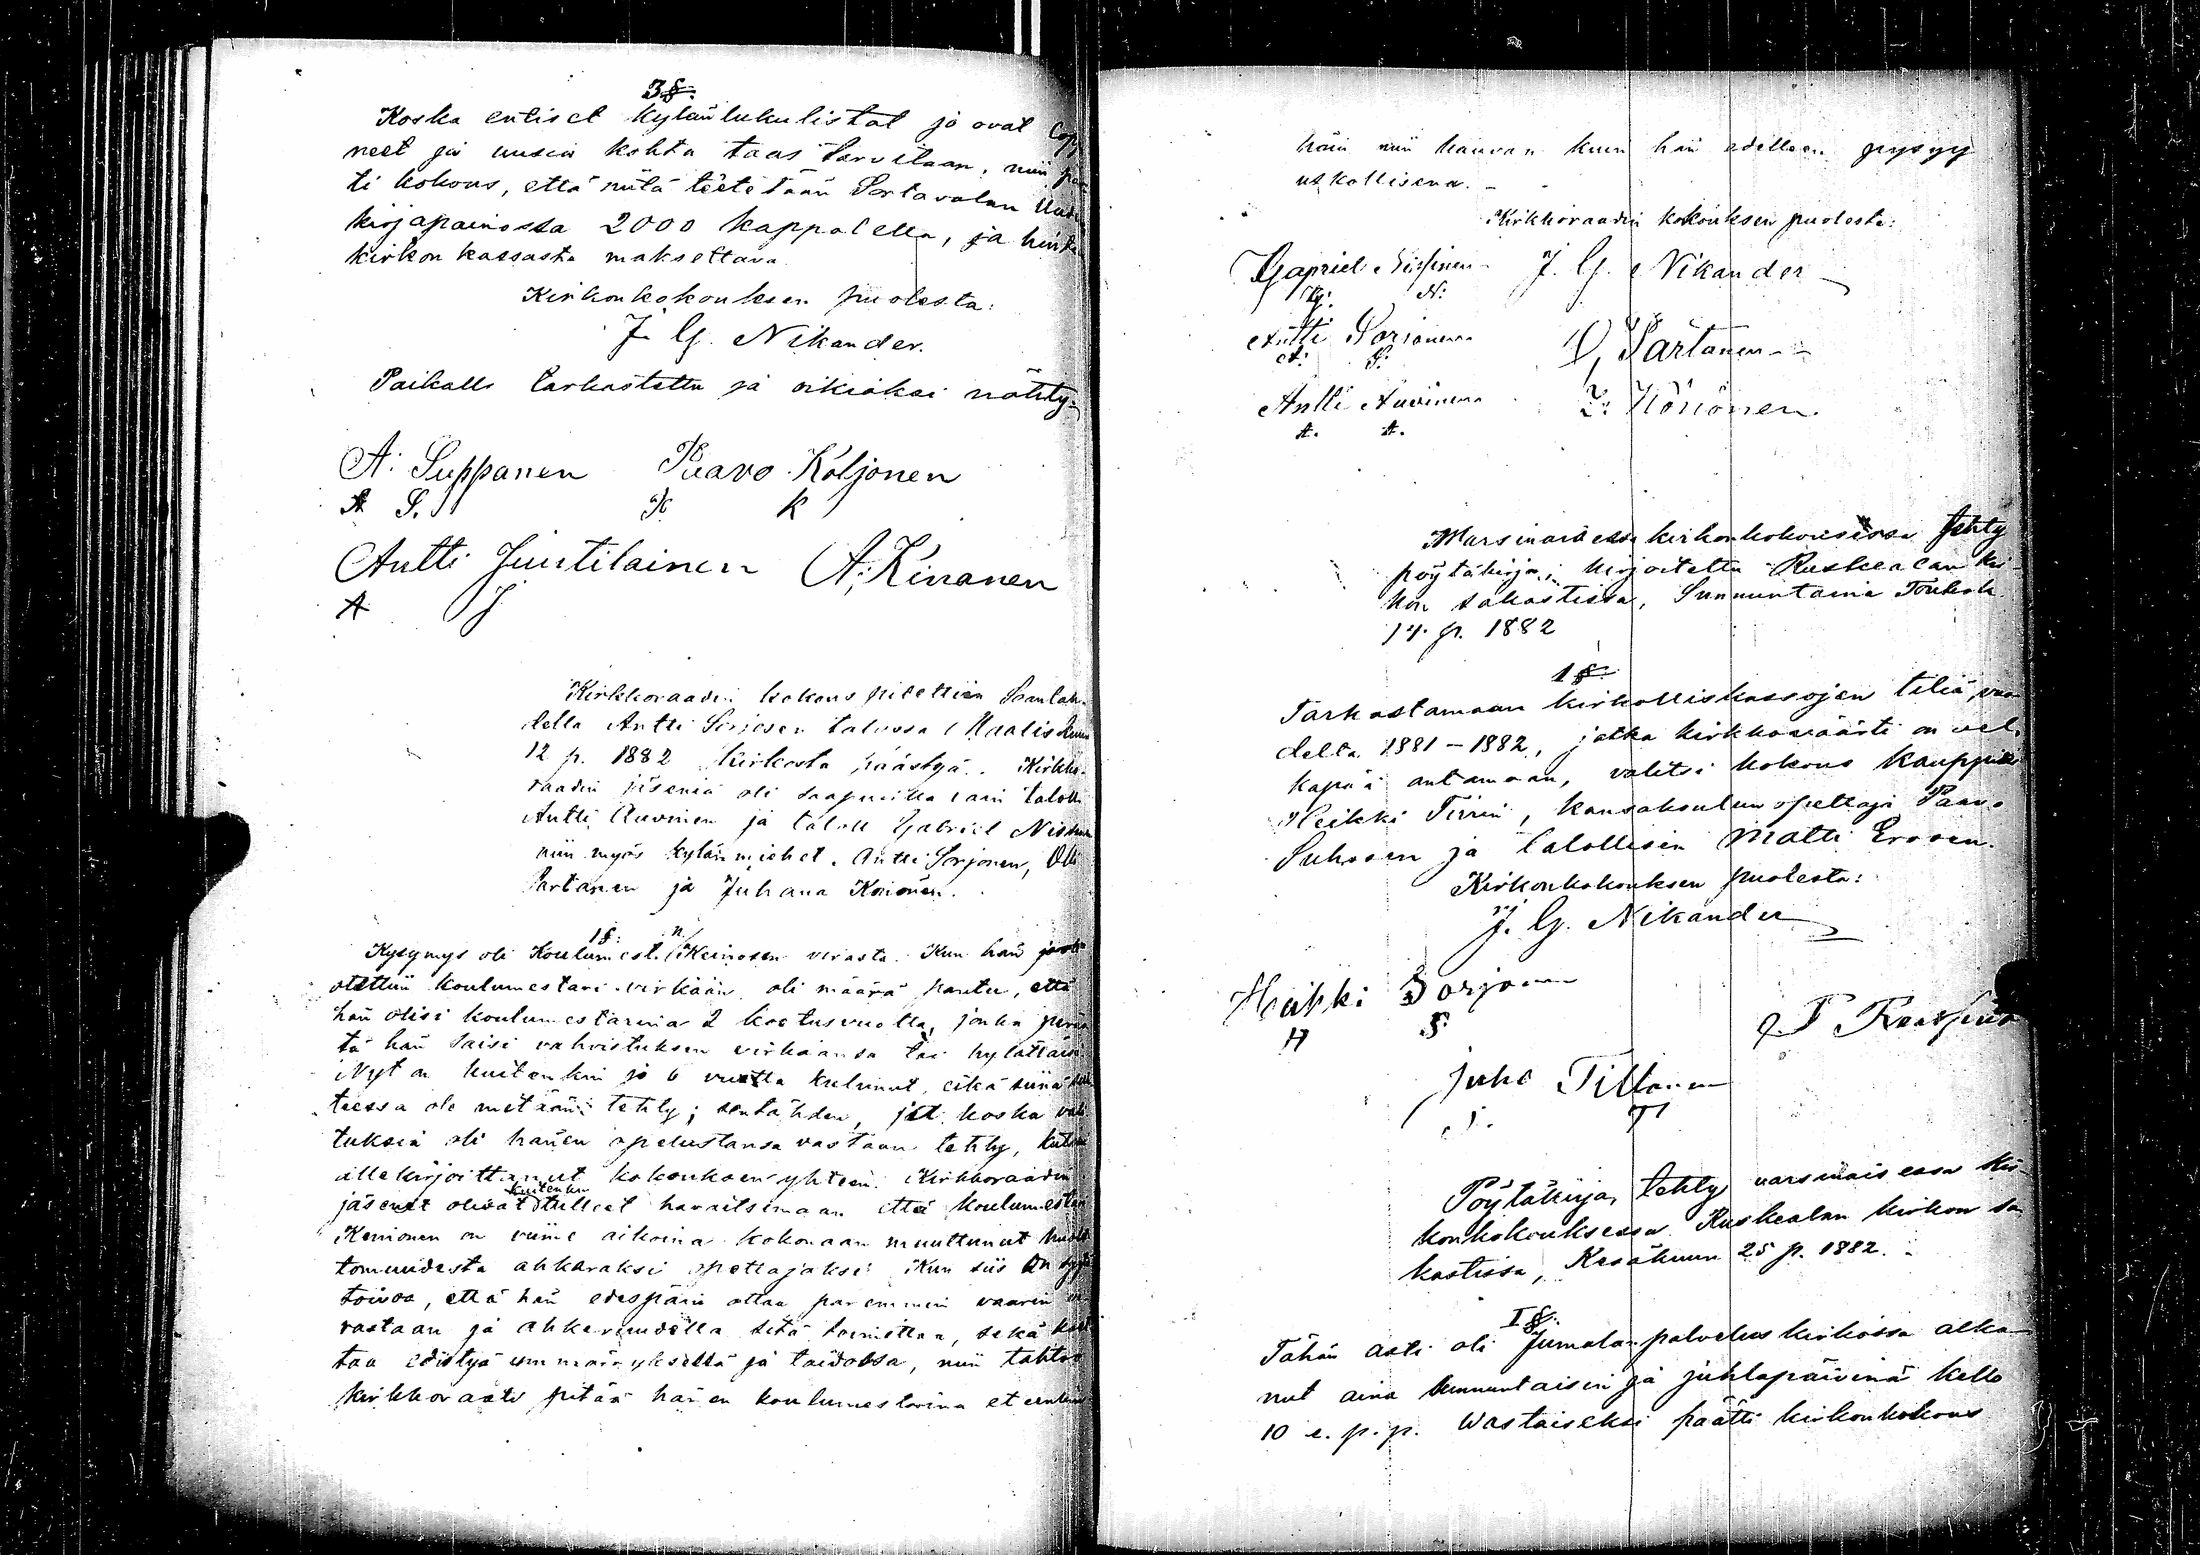 3 §.
Koska entiset kylänlukulistat jo ovat lop
neet ja uusia kohta taas tarvitaan, niin
ti kokous, että niitä teetetään Sortavalan
kirjapainossa 2000 kappaletta, ja hinta
kirkon kassasta maksettava.
Kirkonkokouksen puolesta:
J. G. Nikander.
Paikalla tarkastettu ja oikiaksi nähty:
A: Suppanen Paavo Koljonen
A S. K
Antti Juntilainen A; Kinanen
A J
Kirkkoraadin kokous pidettiin
della Antti talossa Maaliskuun
12 p. 1882 kirkosta päästyä. Kirkko-
raadin jäseniä oli saapuvilla vain talol.
Antti Auvinen ja taloll Gabriel
niin myös kylänmiehet. Antti Sorjonen, Olli
Partanen ja Juhana Könönen.
1 §.
Kysymys oli Koulumest. Keinosen virasta. Kun hän
otettiin koulumestari virkaan, oli määrä pantu, että
hän olisi koulumestarina 2 koetusvuotta, jonka
tä hän saisi vahvistuksen virkaansa tai
Nyt on kuitenkin jo 6 vuotta kulunut, eikä siinä
teessa ole mitään tehty; sentähden, ja koska
tuksia oli hänen opetustansa vastaan tehty,
allekirjoittanut kokouksen yhteen. Kirkkoraadin
jäsenet olivat kuitenkin tulleet havaitsemaan että koulumestari
Keinonen on viime aikoina kokonaan muuttunut
tomuudesta ahkeraksi opettajaksi. Kun siis on syytä
toivoa, että hän edespäin ottaa paremmin vaarin
vastaan ja ahkeruudella sitä toimittaa, sekä
taa edistyä ymmärryksessä ja taidossa, niin tahtoo
kirkkoraati pitää hänen koulumestarina
hän niin kauvan kuin hän edelleen pysyy
uskollisena. -
Kirkkoraadin kokouksen puolesta:
Gapriel Nissinen J. G. Nikander
G: N:
Antti Sorjonen O, Partanen
A: S:
Antti Auvinen J: Könönen.
A. A.
Warsinaisessa kirkonkokouksessa tehty
pöytäkirja, kirjoitettu Ruskealan kir-
kon sakastissa, Sunnuntaina Toukok.
14. p. 1882
1 §.
Tarkastamaan kirkolliskassojen tiliä, vuo
delta 1881-1882, jotka kirkkoväärti on vel-
kapää antamaan, valitsi kokous kauppias
Heikki Tirrin, kansakoulun opettaja Paavo
Suhosen ja talollisen Matti Erosen.
Kirkonkokouksen puolesta:
J. G. Nikander
Heikki Sorjonen
H S
Juho Tillanen
J. T
Pöytäkirja, tehty varsinaisessa kir-
konkokouksessa Ruskealan kirkon sa
kastissa, Kesäkuun 25 p. 1882.
I §.
Tähän asti oli Jumalanpalvelus kirkossa alka-
nut aina sunnuntaisin ja juhlapäivinä kello
10 e. p. p. Wastaiseksi päätti kirkonkokous